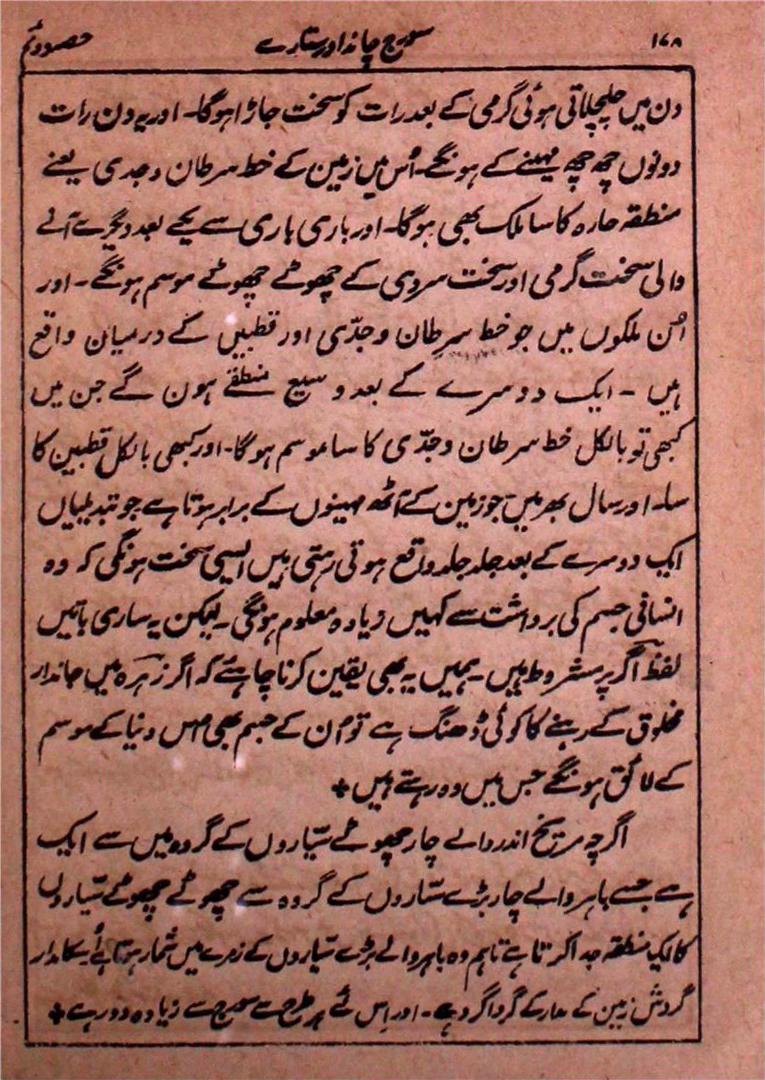 ۱۶۸ سورج چاند اور ستارے حصہ دوئم
دن میں چلچلاتی ہوئی گرمی کے بعد رات کو سخت جاڑا ہوگا۔ اور یہ دن رات
دونوں چھ چھ مہینے کے ہونگے۔ اُس میں زمین کے خط سرطان و جدی یعنے
منطقہ حارہ کا سا ملک بھی ہوگا۔ اور باری باری سے یکے بعد دیگرے آنے
والی سخت گرمی اور سخت سردی کے چھوٹے چھوٹے موسم ہونگے۔ اور
اُن ملکوں میں جو خط سرطان و جدّی اور قطبیں کے درمیان واقع
ہیں ۔ ایک دوسرے کے بعد وسیع منطقے ہون گے جن میں
کبھی تو بالکل خط سرطان و جدّی کا سا موسم ہوگا۔ اور کبھی بالکل قطبین کا
سا۔ اور سال بھر میں جو زمین کے آٹھ مہینوں کے برابر ہوتا ہے جو تبدیلیاں
ایک دوسرے کے بعد جلد جلد واقع ہوتی رہتی ہیں ایسی سخت ہونگی کہ وہ
انسانی جسم کی برداشت سے کہیں زیادہ معلوم ہونگی۔ لیکن یہ ساری باتیں
لفظ اگر پر مشروط ہیں۔ ہمیں یہ بھی یقین کرنا چاہئے کہ اگر زہرہ میں جاندار
مخلوق کے رہنے کا کوئی ڈھنگ ہے تو اُن کے جسم بھی اس دنیا کے موسم
کے لائق ہونگے جس میں وہ رہتے ہیں +
اگرچہ مریخ اندر والے چار چھوٹے سیّاروں کے گروہ میں سے ایک
ہے جسے باہر والے چار بڑے ستاروں کے گروہ سے چھوٹے چھوٹے سیّاروں
کا ایک منطقہ جدا کرتا ہے تاہم وہ باہر والے بڑے سیّاروں کے زمرے میں شمار ہوتا ہے اُسکا مدار
گردش زمین کے مدار کے گردا گرد ہے۔ اور اِس لئے ہر طرح سے سورج سے زیادہ دور ہے +